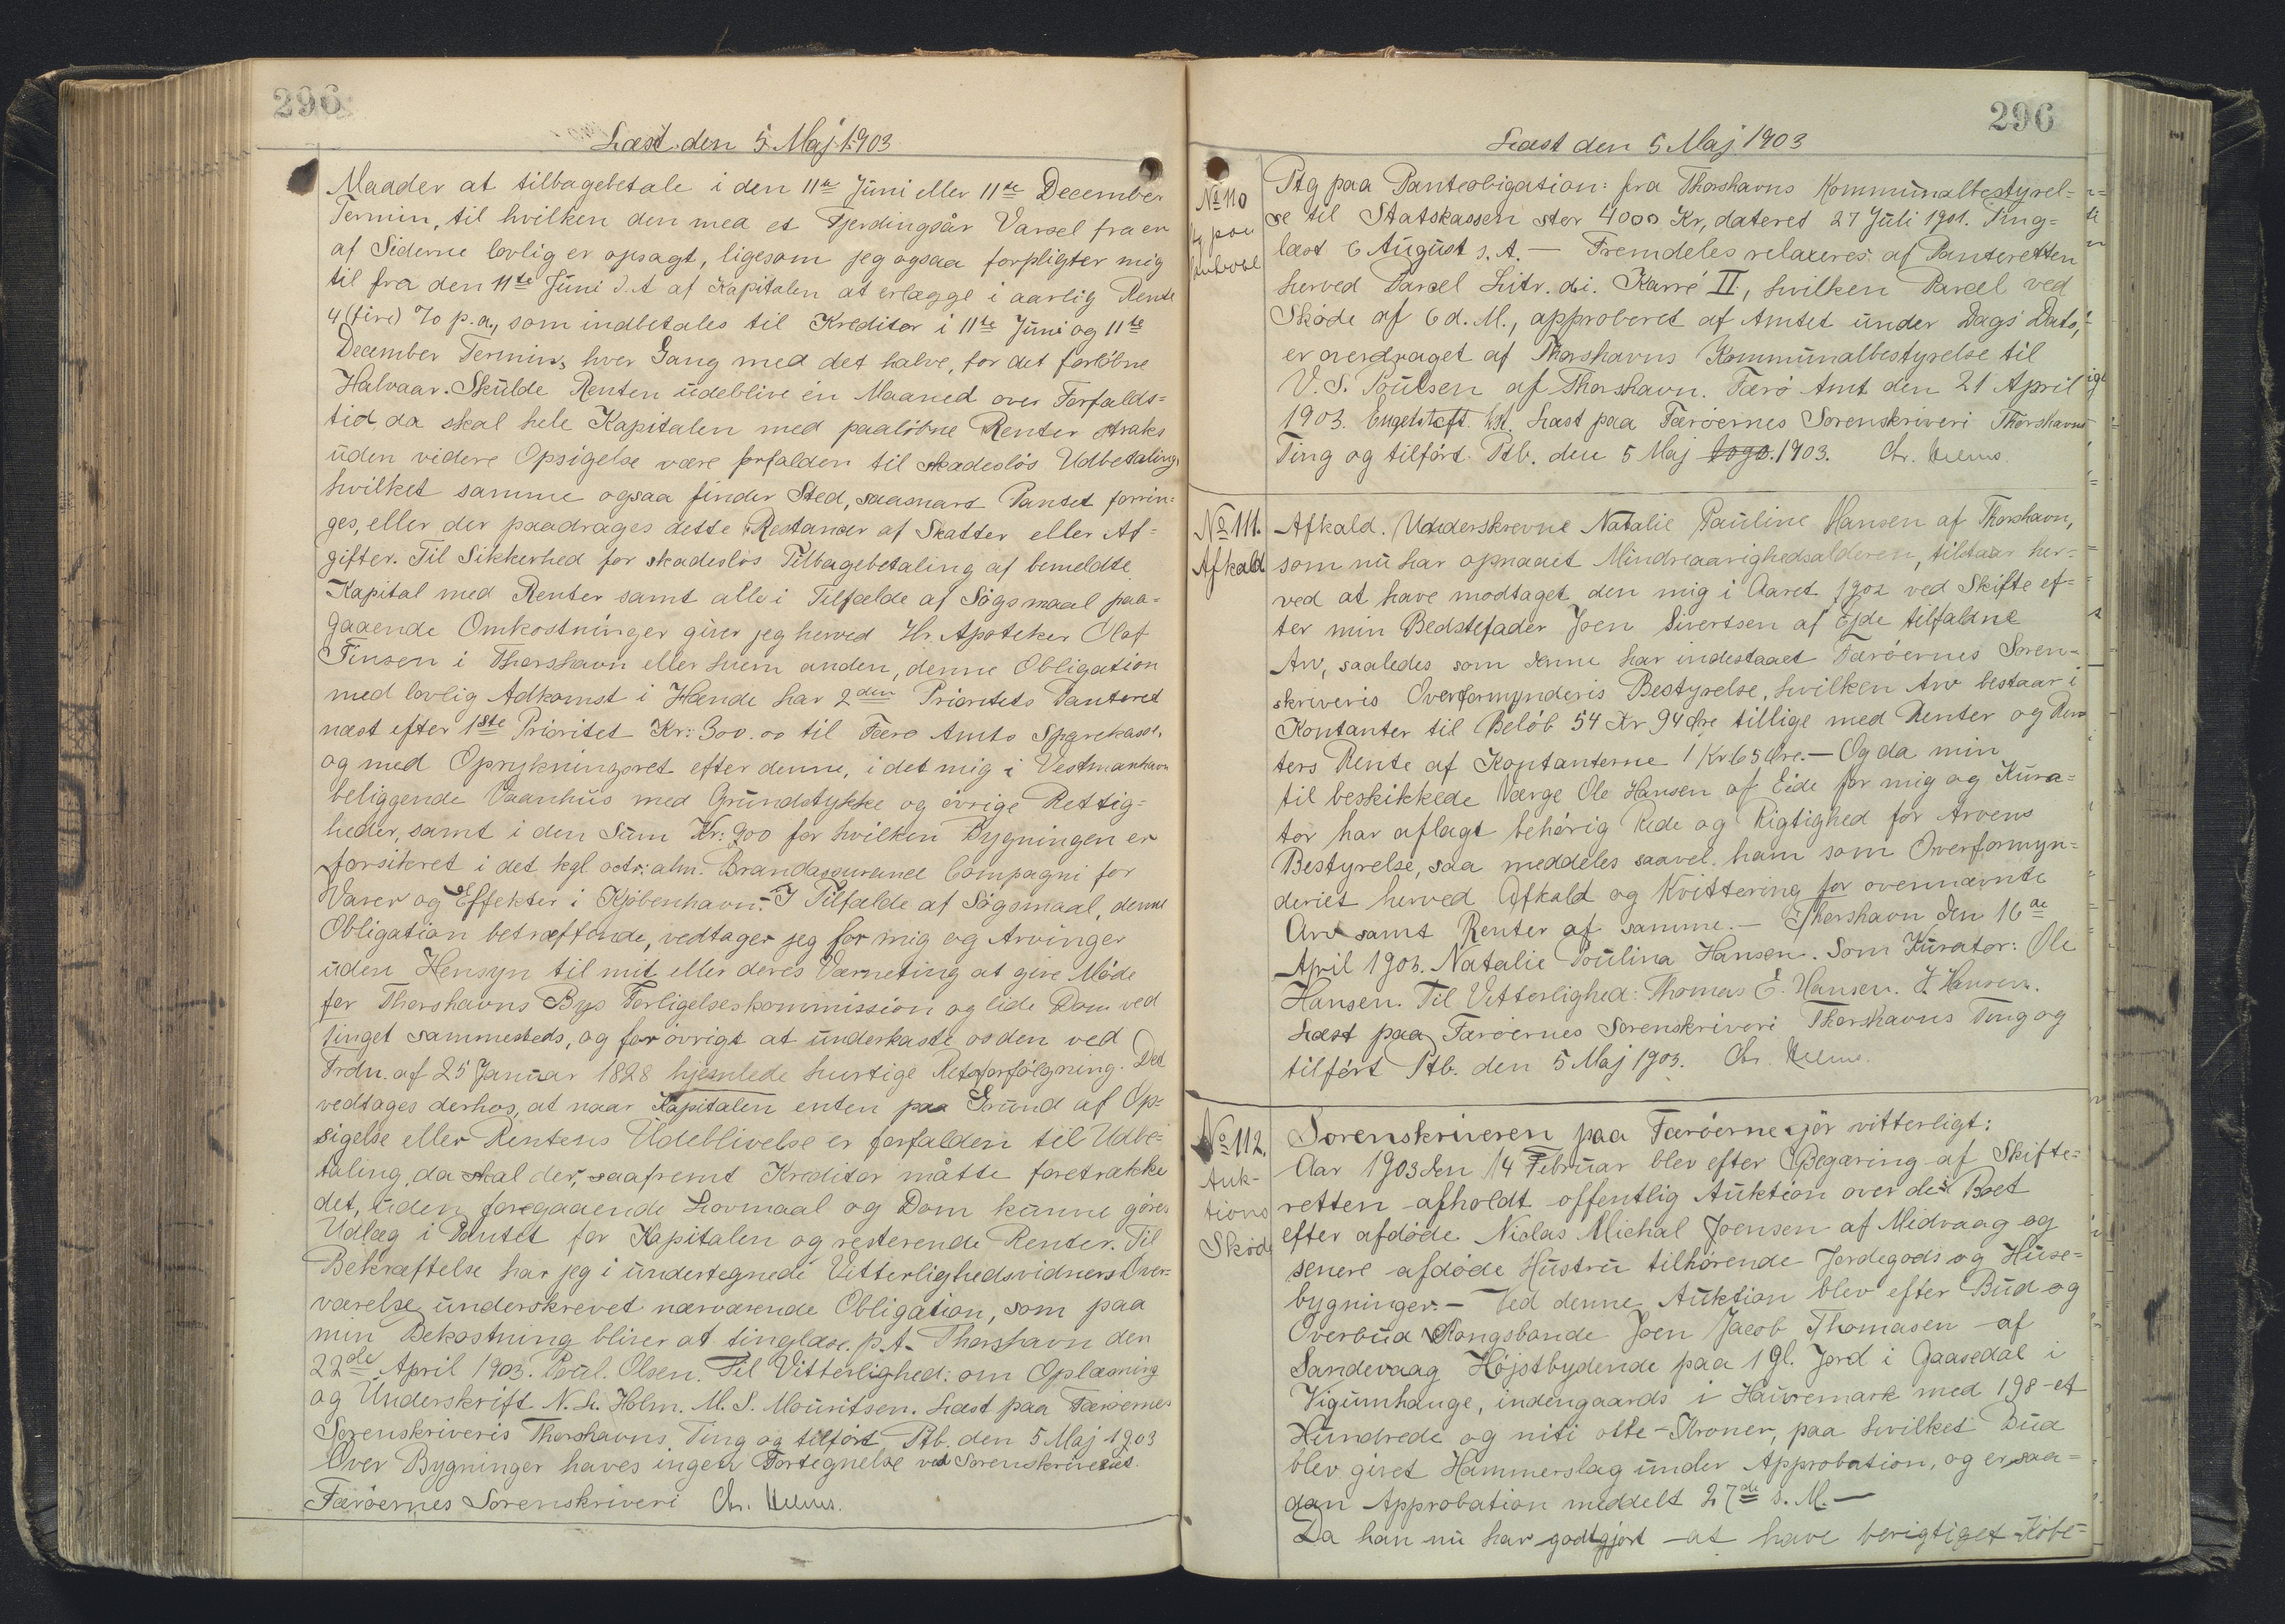 296
Læst den 5 Maj 1903
Maader at tilbagebetale i den 11te Juni eller 11te December
Termin, til hvilken den med et Fjerdingsår Varsel fra en
af Siderne lovlig er opsagt, ligesom jeg ogsaa forpligter mig
til fra den 11te Juni d. A af Kapitalen at erlægge i aarlig Rente
4 (fire) % p.a., som indbetales til Kreditor i 11te Juni og 11te
December Termin, hver Gang med det halve, for det forløbne
Halvaar. Skulde Renten udeblive én Maaned over Forfalds=
tid, da skal hele Kapitalen med paaløbne Renter straks
uden videre Opsigelse være forfalden til skadesløs Udbetaling,
hvilket samme ogsaa finder Sted, saasnart Pantet forrin=
ges, eller der paadrages dette Restancer af Skatter eller Af=
gifter. Til Sikkerhed for skadesløs Tilbagebetaling af bemeldte
Kapital med Renter samt alle i Tilfælde af Søgsmaal paa=
gaaende Omkostninger giver jeg herved Hr. Apoteker Olaf
Finsen i Thorshavn eller hvem anden, denne Obligation
med lovlig Adkomst i Hænde har 2den Prioritets Panteret
næst efter 1ste Prioritet Kr: 300.00 til Færø Amts Sparekasse,
og med Oprykningsret efter denne, i det mig i Vestmanhavn
beliggende Vaanhus med Grundstykke og øvrige Rettig=
heder, samt i den Sum Kr: 900 for hvilken Bygningen er
forsikret i det kgl octr: alm. Brandassurance Compagni for
Varer og Effekter i Kjøbenhavn.- I Tilfælde af Søgsmaal, denne
Obligation betræffende, vedtager jeg for mig og Arvinger
uden Hensyn til mit eller deres Værneting at give Møde
for Thorshavns Bys Forligelseskommission og lide Dom ved
Tinget sammesteds, og for øvrigt at underkaste os den ved
Frdn. af 25 Januar 1828 hjemlede hurtige Retsforfølgning. Det
vedtages derhos, at naar Kapitalen enten paa Grund af Op=
sigelse eller Rentens Udeblivelse er forfalden til Udbe=
taling, da skal der, saafremt Kreditor måtte foretrække
det, uden foregaaende Lovmaal og Dom kunne gøres
Udlæg i Pantet for Kapitalen og resterende Renter. Til
Bekræftelse har jeg i undertegnede Vitterlighedsvidners Over=
værelse underskrevet nærværende Obligation, som paa
min Bekostning bliver at tinglæse. p.t. Thorshavn den
22de April 1903. Poul. Olsen. Til Vitterlighed: om Oplæsning
og Underskrift N. L. Holm. M. S. Mouritsen. Læst paa Færøernes
Sorenskriveris Thorshavns Ting og tilført Ptb. den 5 Maj 1903
Over Bygninger haves ingen Fortegnelse ved Sorenskriveriet.
Færøernes Sorenskriveri Chr.
296
Læst den 5 Maj 1903
No 110
Ptg paa Panteobigation: fra Thorshavns Kommunalbestyrel=
se til Statskassen stor 4000 Kr, dateret 27 Juli 1901. Ting=
læst 6 August s. A. — Fremdeles relaxeres af Panteretten
herved Parcel Litr. di. Karré II, hvilken Parcel ved
Skøde af 6 d. M., approberet af Amtet under Dags Dato,
er overdraget af Thorshavns Kommunalbestyrelse til
V. S. Poulsen af Thorshavn. Færø Amt den 21 April
1903. Engelstoft. kst. Læst paa Færøernes Sorenskriveri Thorshavns
Ting og tilført Ptb. den 5 Maj 1903. Chr.
No 111.
Afkald
Afkald. Underskrevne Natalie Pauline Hansen af Thorshavn,
som nu har opnaaet Mindreaarighedsalderen, tilstaar her=
ved at have modtaget den mig i Aaret 1902 ved Skifte ef=
ter min Bedstefader Joen Sivertsen af Ejde tilfaldne
Arv, saaledes som denne har indestaaet Færøernes Soren=
skriveris Overformynderis Bestyrelse, hvilken Arv bestaar i
Kontanter til Beløb 54 Kr 94 Øre tillige med Renter og Ren
ters Rente af Kontanterne 1 Kr 65 Øre.— Og da min
til beskikkede Værge Ole Hansen af Eide for mig og Kura=
tor har aflagt behørig Rede og Rigtighed for Arvens
Bestyrelse, saa meddeles saavel ham som Overformyn=
deriet herved Afkald og Kvittering for ovennævnte
Arv samt Renter af samme.— Thorshavn den 16de
April 1903. Natalie Poulina Hansen. Som Kurator: Ole
Hansen. Til Vitterlighed: Thomas E. Hansen. Hansen.
Læst paa Færøernes Sorenskriveri Thorshavns Ting og
tilført Ptb. den 5 Maj 1903. Chr.
No 112.
Auk-
tions
Skøde
Sorenskriveren paa Færøerne gjør vitterligt:
Aar 1903 den 14 Februar blev efter Begæring af Skifte=
retten afholdt offentlig Auktion over det Boet
efter afdøde Niclas Michal Joensen af Midvaag og
senere afdøde Hustru tilhørende Jordegods og Huse=
bygninger.— Ved denne Auktion blev efter Bud og
Overbud Kongsbonde Joen Jacob Thomasen af
Sandevaag Højstbydende paa 1 Gl. Jord i Gaasedal i
Vigumhauge, indengaards i Hauremark med 198 - et
Hundrede og niti otte - Kroner, paa hvilket Bud
blev givet Hammerslag under Approbation, og er saa=
dan Approbation meddelt 27de s. M.—
Da han nu har godtgjort at have berigtiget Købe=